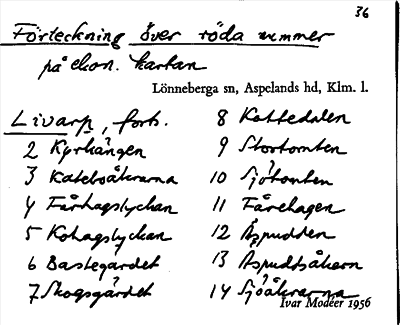 36
Förteckning över röda nummer
på ekon. kartan
Lönneberga sn, Aspelands hd, Klm. l.
Livarp, forts.
2 Kyrkängen
3 Katebsåkrarna
4 Fårhagslyckan
5 Kohagslyckan
6 Bastegärdet
7 Skogsgärdet
8 Kattedalen
9 Stortomten
10 Sjötomten
11 Fårehagen
12 Äspudden
13 Äspuddsåkern
14 Sjöåkrarna
Ivar Modéer 1956